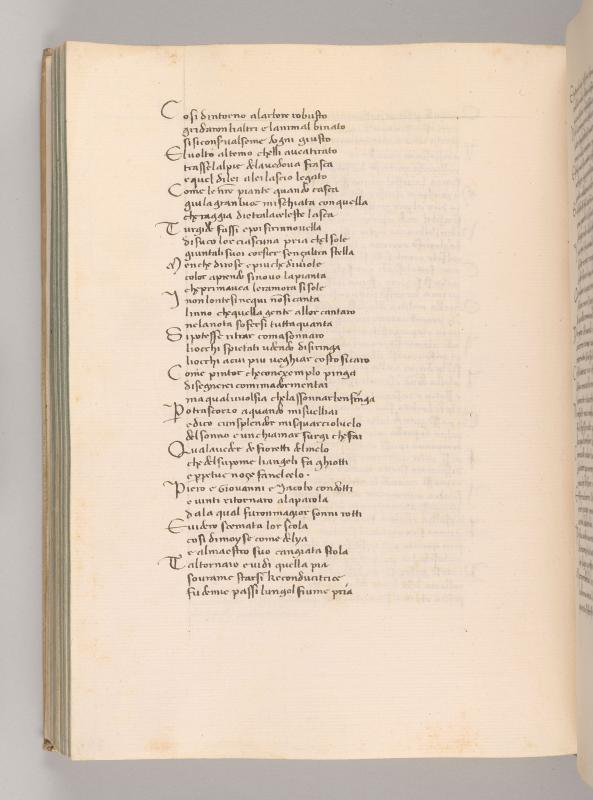 Cosi dintorno alarbore robusto
gridaron lialtri e lanimal binato
si si conserva il seme dogni giusto
E volto altemo chelli avea tirato
trassel alpie dela vedova frasca
e quel di lei alei lascio legato
Come le nre piante quando casca
giu la gran luce mischiata con quella
che raggia dietro ala celeste lasca
Turgide fassi e poi si rinovella
di suo color ciascuna pria chel sole
giunta li suoi corsier sençaltra stella
Men che di rose e piu che di viole
color aprendo sinovo la pianta
che prima avea le ramora si sole
I non lontesi ne qui nosi canta
linno che quella gente allor cantaro
ne la nota soffersi tutta quanta
Si potesse ritrar como asonnaro
liocchi spietati udendo di siringa
liocchi acui piu veghiar costo si caro
Come pintor che con exemplo pinga
disegnerei comi madormentai
ma qual vuol sia che lassonnar ben finga
Po trascorro a quando mi svelliai
e dico cun splendor mi squarcio lvelo
del sonno e un chiamar surgi che fai
Qual a veder de fioretti del melo
che del su pome li angeli fa ghiotti
e perpetue noçe fa nel celo
Piero e Giovanni e Jacobo condotti
e vinti ritornaro ala parola
dala qual furon magior sonni rotti
E videro scemata lor scola
cosi di moyse come delya
e al maestro suo cangiata stola
Tal tornaio e vidi quella pia
sovra me starsi che conducitrice
fu demie passi lungol fiume pria